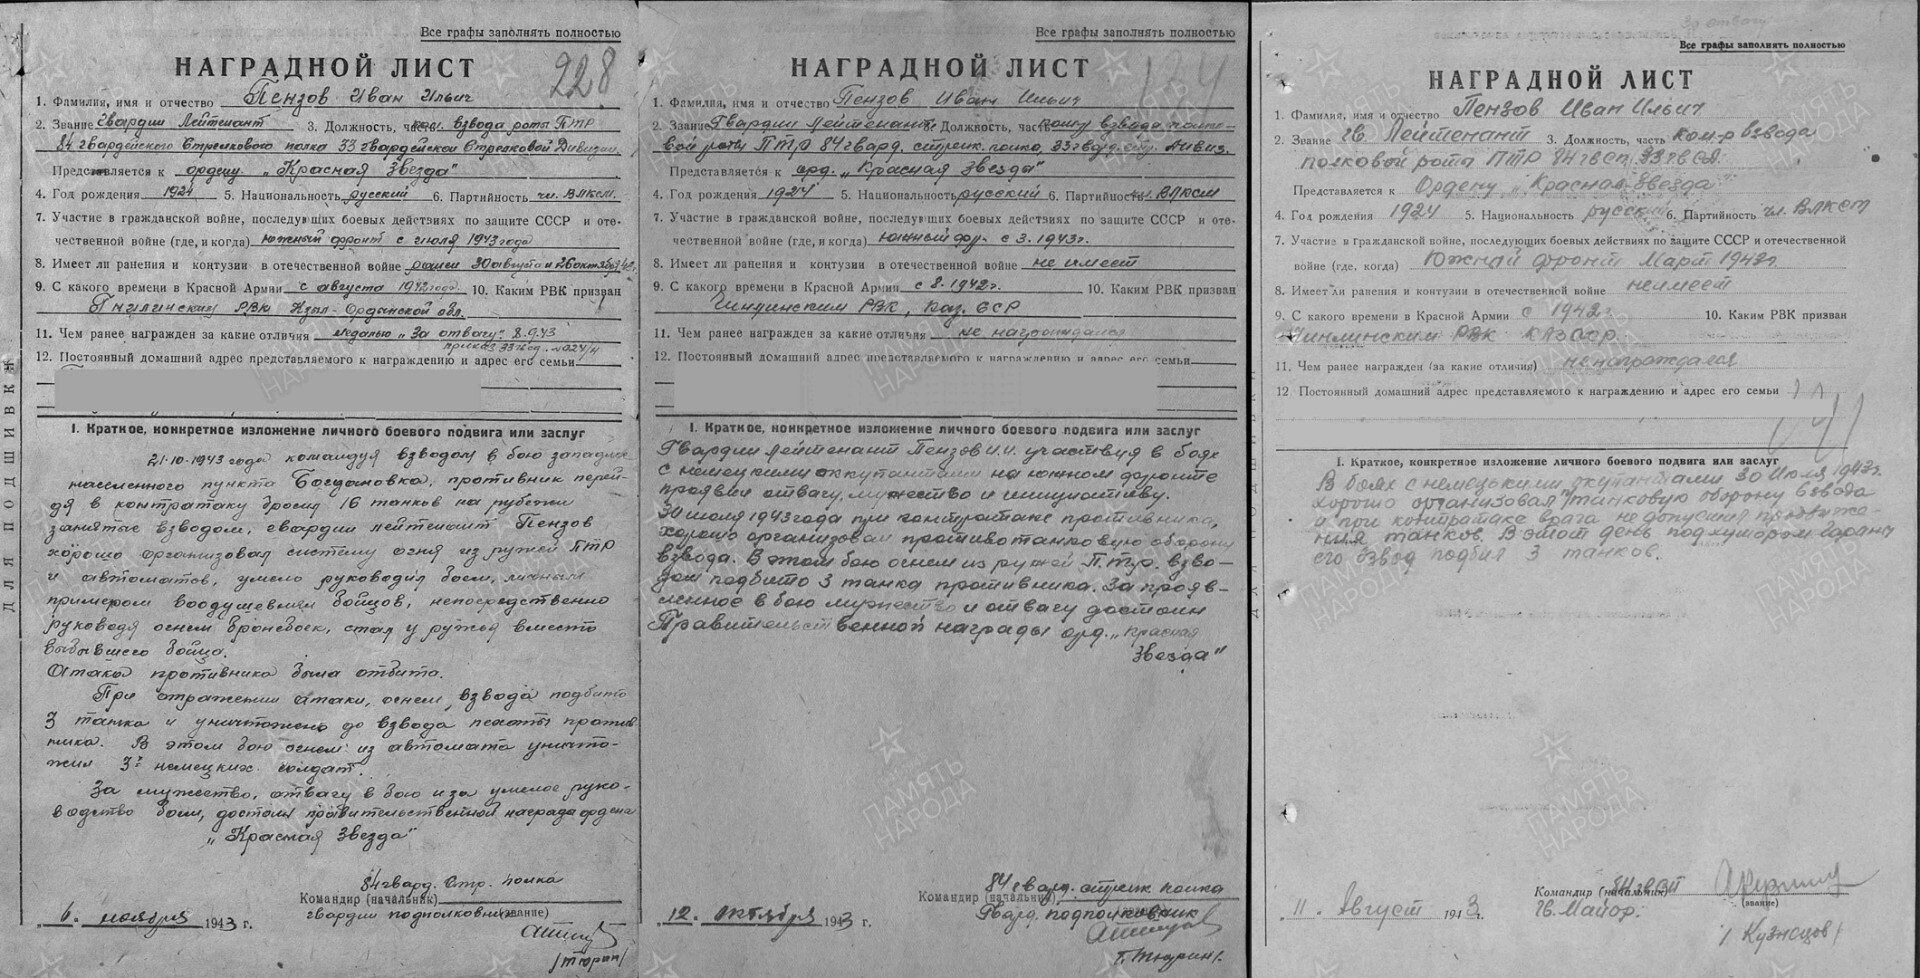 Все графы заполнять полностью
НАГРАДНОЙ ЛИСТ
228
1. Фамилия, имя и отчество Пензов Иван Ильич
2. Звание Гвардии Лейтенант 3. Должность, часть ком. взвода роты ПТР
84 гвардейского Стрелкового полка 33 гвардейской Стрелковой Дивизии.
Представляется к ордену „Красная Звезда"
4. Год рождения 1924 5. Национальность русский 6. Партийность чл. ВЛКСМ.
7. Участие в гражданской войне, последующих боевых действиях по защите СССР и оте-
чественной войне (где, и когда) южный фронт с июля 1943 года
8. Имеет ли ранения и контузии в отечественной войне ранен 30 августа и 26 октября
9. С какого времени в Красной Армии с августа 1942 год. 10. Каким РВК призван
РВК Кзыл-Ординской обл.
11. Чем ранее награжден за какие отличия медалью „За отвагу" 8.9.43
приказ
12. Постоянный домашний адрес представляемого к награждению и адрес его семьи
ДЛЯ ПОДШИВКИ
I. Краткое, конкретное изложение личного боевого подвига или заслуг
21.10.1943 года командуя взводом в бою западнее
населенного пункта Богдановка, противник перей-
дя в контратаку бросил 16 танков на рубежи
занятые взводом, гвардии лейтенант Пензов
хорошо организовал систему огня из ружей ПТР
и автоматов, умело руководил боем, личным
примером воодушевлял бойцов, непосредственно
руководя огнем бронебоек, стал у ружья вместо
выбывшего бойца.
Атака противника была отбита.
При отражении атаки, огнем взвода подбито
3 танка и уничтожено до взвода пехоты против
ника. В этом бою огнем из автомата уничто-
жил 3х немецких солдат.
За мужество, отвагу в бою и за умелое руко-
водство боем, достоин правительственной награды ордена
„Красная Звезда"
84 гвард. Стр. полка
Командир (начальник)
гвардии подполковник (звание)
„6. ноября 1943 г.
/Тюрин/
Все графы заполнять полностью
НАГРАДНОЙ ЛИСТ
1. Фамилия, имя и отчество Пензов Иван Ильич
2. Звание Гвардии Лейтенант 3. Должность, часть взвода полко-
вой роты ПТР 84 гвард. стрелк. полка, 33 гвард. стр. дивиз.
Представляется к орд. „Красная Звезда"
4. Год рождения 1924 5. Национальность русский 6. Партийность ВЛКСМ
7. Участие в гражданской войне, последующих боевых действиях по защите СССР и оте-
чественной войне (где, и когда) южный фр. с 3. 1943 г.
8. Имеет ли ранения и контузии в отечественной войне не имеет
9. С какого времени в Красной Армии с 8. 1942 г. 10. Каким РВК призван
РВК, Каз. ССР
11. Чем ранее награжден за какие отличия не награждался
12. Постоянный домашний адрес представляемого к награждению и адрес его семьи
I. Краткое, конкретное изложение личного боевого подвига или заслуг
Гвардии Лейтенант Пензов И.И. участвуя в боях
с немецкими оккупантами на южном фронте
проявил отвагу, мужество и инициативу.
30 июля 1943 года при контратаке противника,
хорошо организовал противотанковую оборону
взвода. В этом бою огнем из ружей П.Т.Р. взво-
дом подбито 3 танка противника. За прояв-
ленное в бою мужество и отвагу достоин
Правительственной награды орд. „Красная
Звезда"
84 гвард. стрелк. полка
Командир (начальник)
Гвард. подполковник
„12. октября 1943 г.
Тюрин/.
За отвагу
Все графы заполнять полностью
НАГРАДНОЙ ЛИСТ
1. Фамилия, имя и отчество Пензов Иван Ильич
2. Звание гв. Лейтенант 3. Должность, часть ком-р взвода
полковой рота ПТР 84 гвсп 33 гвсд
Представляется к Ордену „Красная Звезда"
4. Год рождения 1924 5. Национальность русский 6. Партийность чл. ВЛКСМ
7. Участие в гражданской войне, последующих боевых действиях по защите СССР и отечественной
войне (где, когда) Южной фронт Март 1943 г.
8. Имеет ли ранения и контузии в отечественной войне неимеет
9. С какого времени в Красной Армии с 1942 г. 10. Каким РВК призван
Чиилинским РВК КАЗССР.
11. Чем ранее награжден (за какие отличия) ненаграждался
12 Постоянный домашний адрес представляемого к награждению и адрес его семьи
I. Краткое, конкретное изложение личного боевого подвига или заслуг
В боях с немецкими окупантами 30 Июля 1943 г.
хорошо организовал п/танковую оборону взвода
и при контратаке врага не допустил продвиже-
ния танков. В этот день под хутором
его взвод подбил 3 танков.
Командир (начальник) 84 гвсп
Гв. Майор. (звание)
„11. Август 1943 г.
/Кузнецов/
ПАМЯТЬ НАРОДА